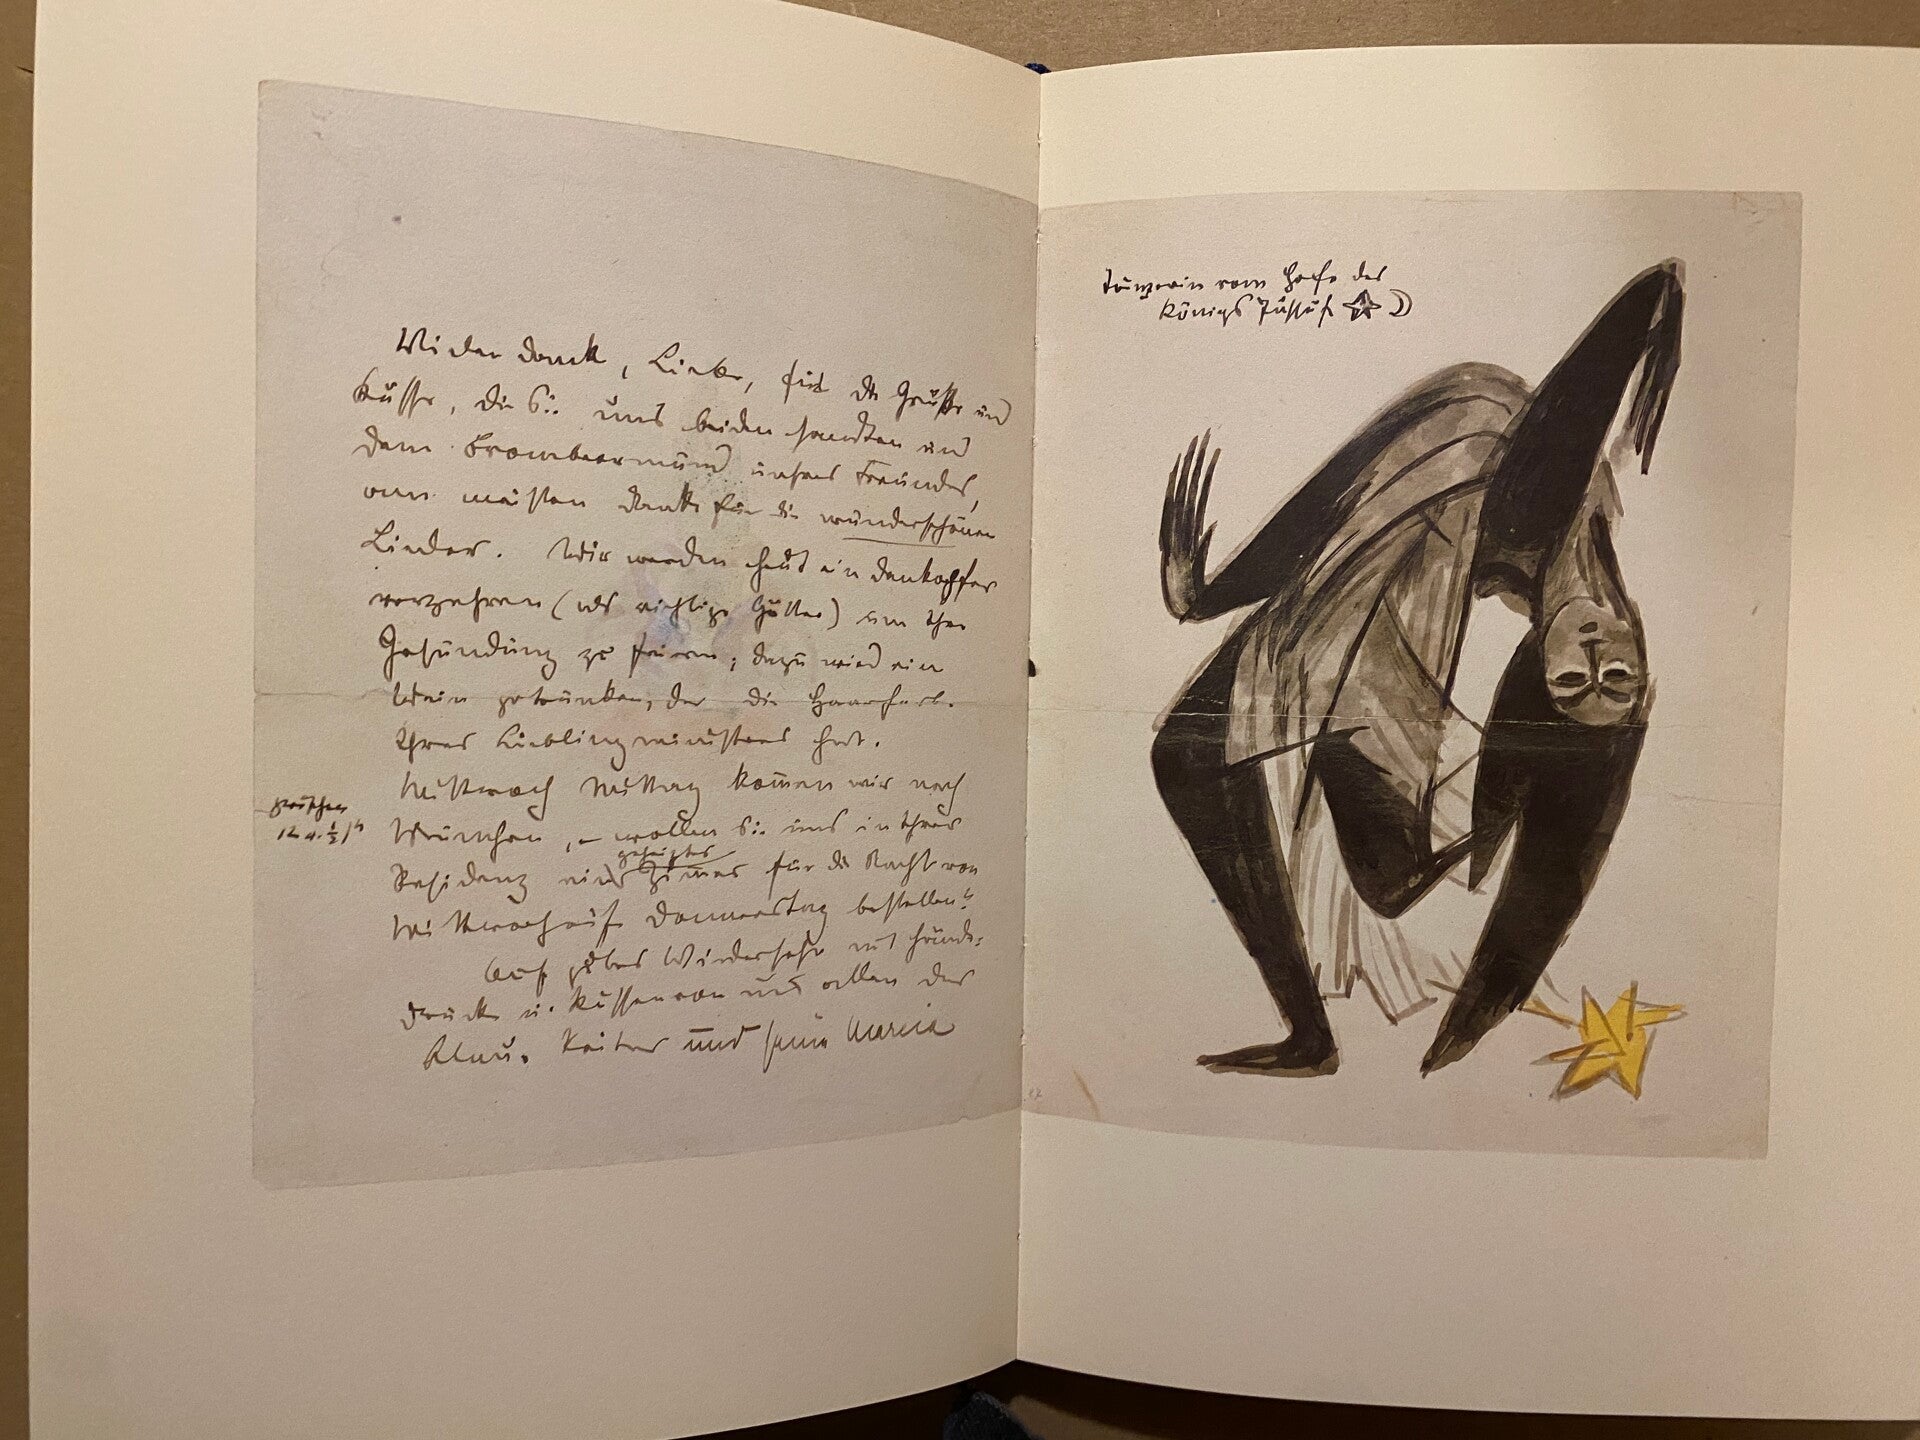 Wieder Dank, Liebe, für die Grüße und
Küsse, die Sie uns beiden sandten und
dem Brombeermund unsres Freundes,
am meisten Dank für die wunderschönen
Lieder. Wir werden heut ein Dankopfer
verzehren (als richtige Götter) um Ihre
Gesundung zu feiern; dazu wird ein
Wein getrunken, der die Haarfarbe
Ihres Lieblingsministers hat.
Mittwoch Mittag kom̄en wir nach
zwischen
12 u. ½ 1 h
München, – wollen Sie uns in Ihrer
geheiztes
Residenz ein Zim̄er für die Nacht von
Mittwoch auf Donnerstag bestellen?
Auf gutes Wiedersehn mit Hände-
druck u. Küssen von uns allen der
Blau. Reiter und seine Maria
Tänzerin vom Hofe des
Königs Jussuf